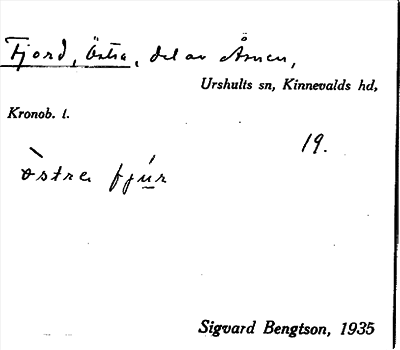 Fjord, Östra, del av Åsnen,
Urshults sn, Kinnevalds hd,
Kronob. l.
19.
östra fjụr
Sigvard Bengtson, 1935